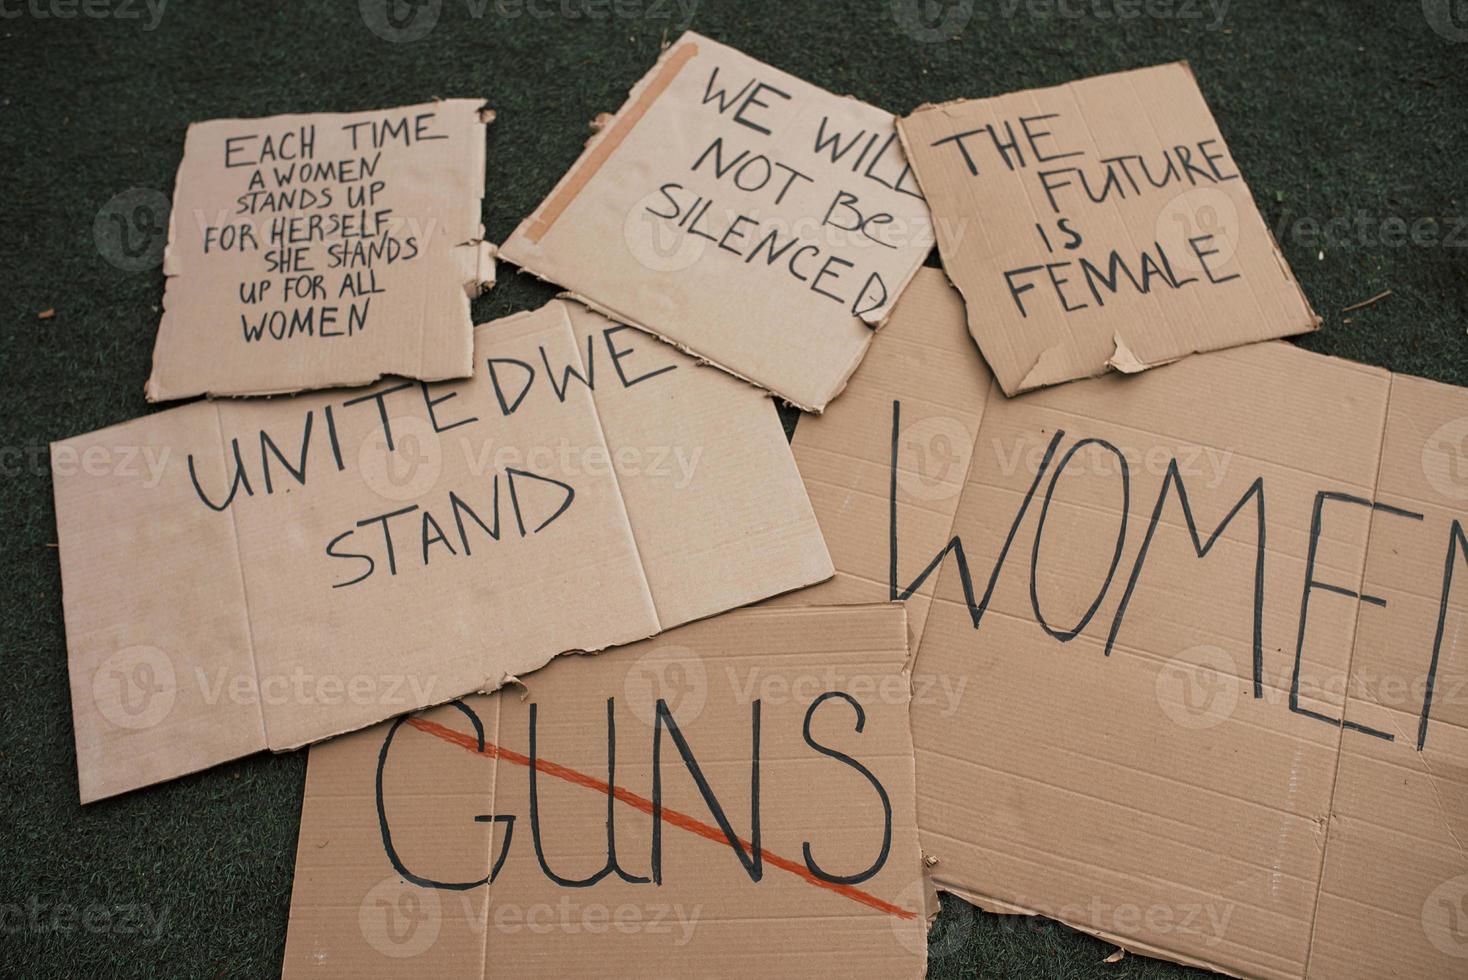 EACH TIME
A WOMEN
STANDS UP
FOR HERSELF
SHE STANDS
UP FOR ALL
WOMEN
WE WILL
NOT BE
SILENCED
THE
FUTURE
IS
FEMALE
UNITED WE
STAND
WOMEN
GUNS
Vecteezy